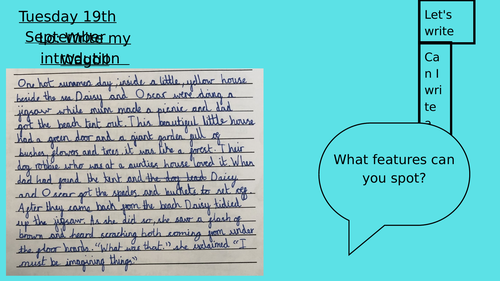 Tuesday 19th
September
Lo: Write my
introduction
Wagbll
Let's
write
Ca
n I
wri
te
a
What features can
you spot?
One hot summer day, inside a little, yellow house
beside the sea Daisy and Oscar were doing a
jigsaw while mum made a picnic and dad
got the beach tint out. This beautiful little house
had a green door and a giant garden full of
bushes, flowers and trees, it was like a forest. Their
dog robie who was at a aunties house loved it. When
dad had found the tent and the dog lead Daisy
and Oscar got the spades and buckets to set off.
After they came back from the beach Daisy tidied
up the jigsaw. As she did so, she saw a flash of
brown and heard scraching both coming from under
the floor boards. "What was that." she exclaimed "I
must be imagining things"